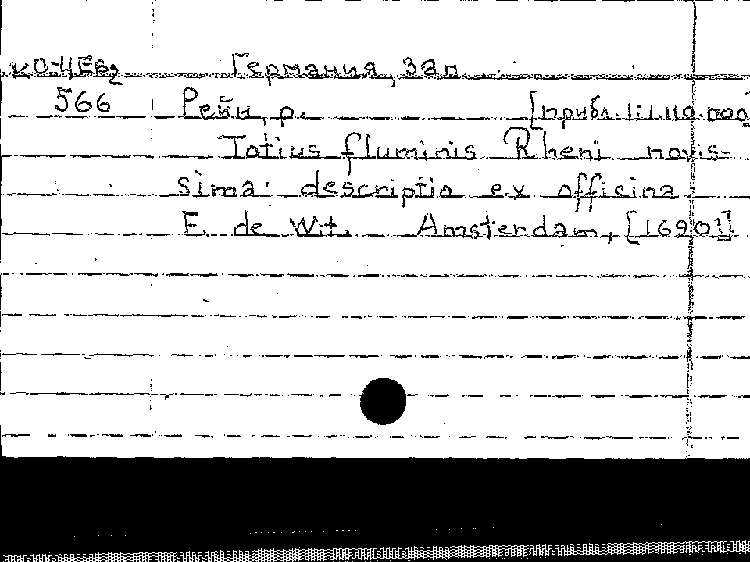 КО-ЦЕв2 Германия, Зап
566 Рейн, р. [прибл. 1:1.110.000]
Totius fluminis Rheni novis-
sima descriptio ex officina
F. de Wit. Amsterdam, [1690?]